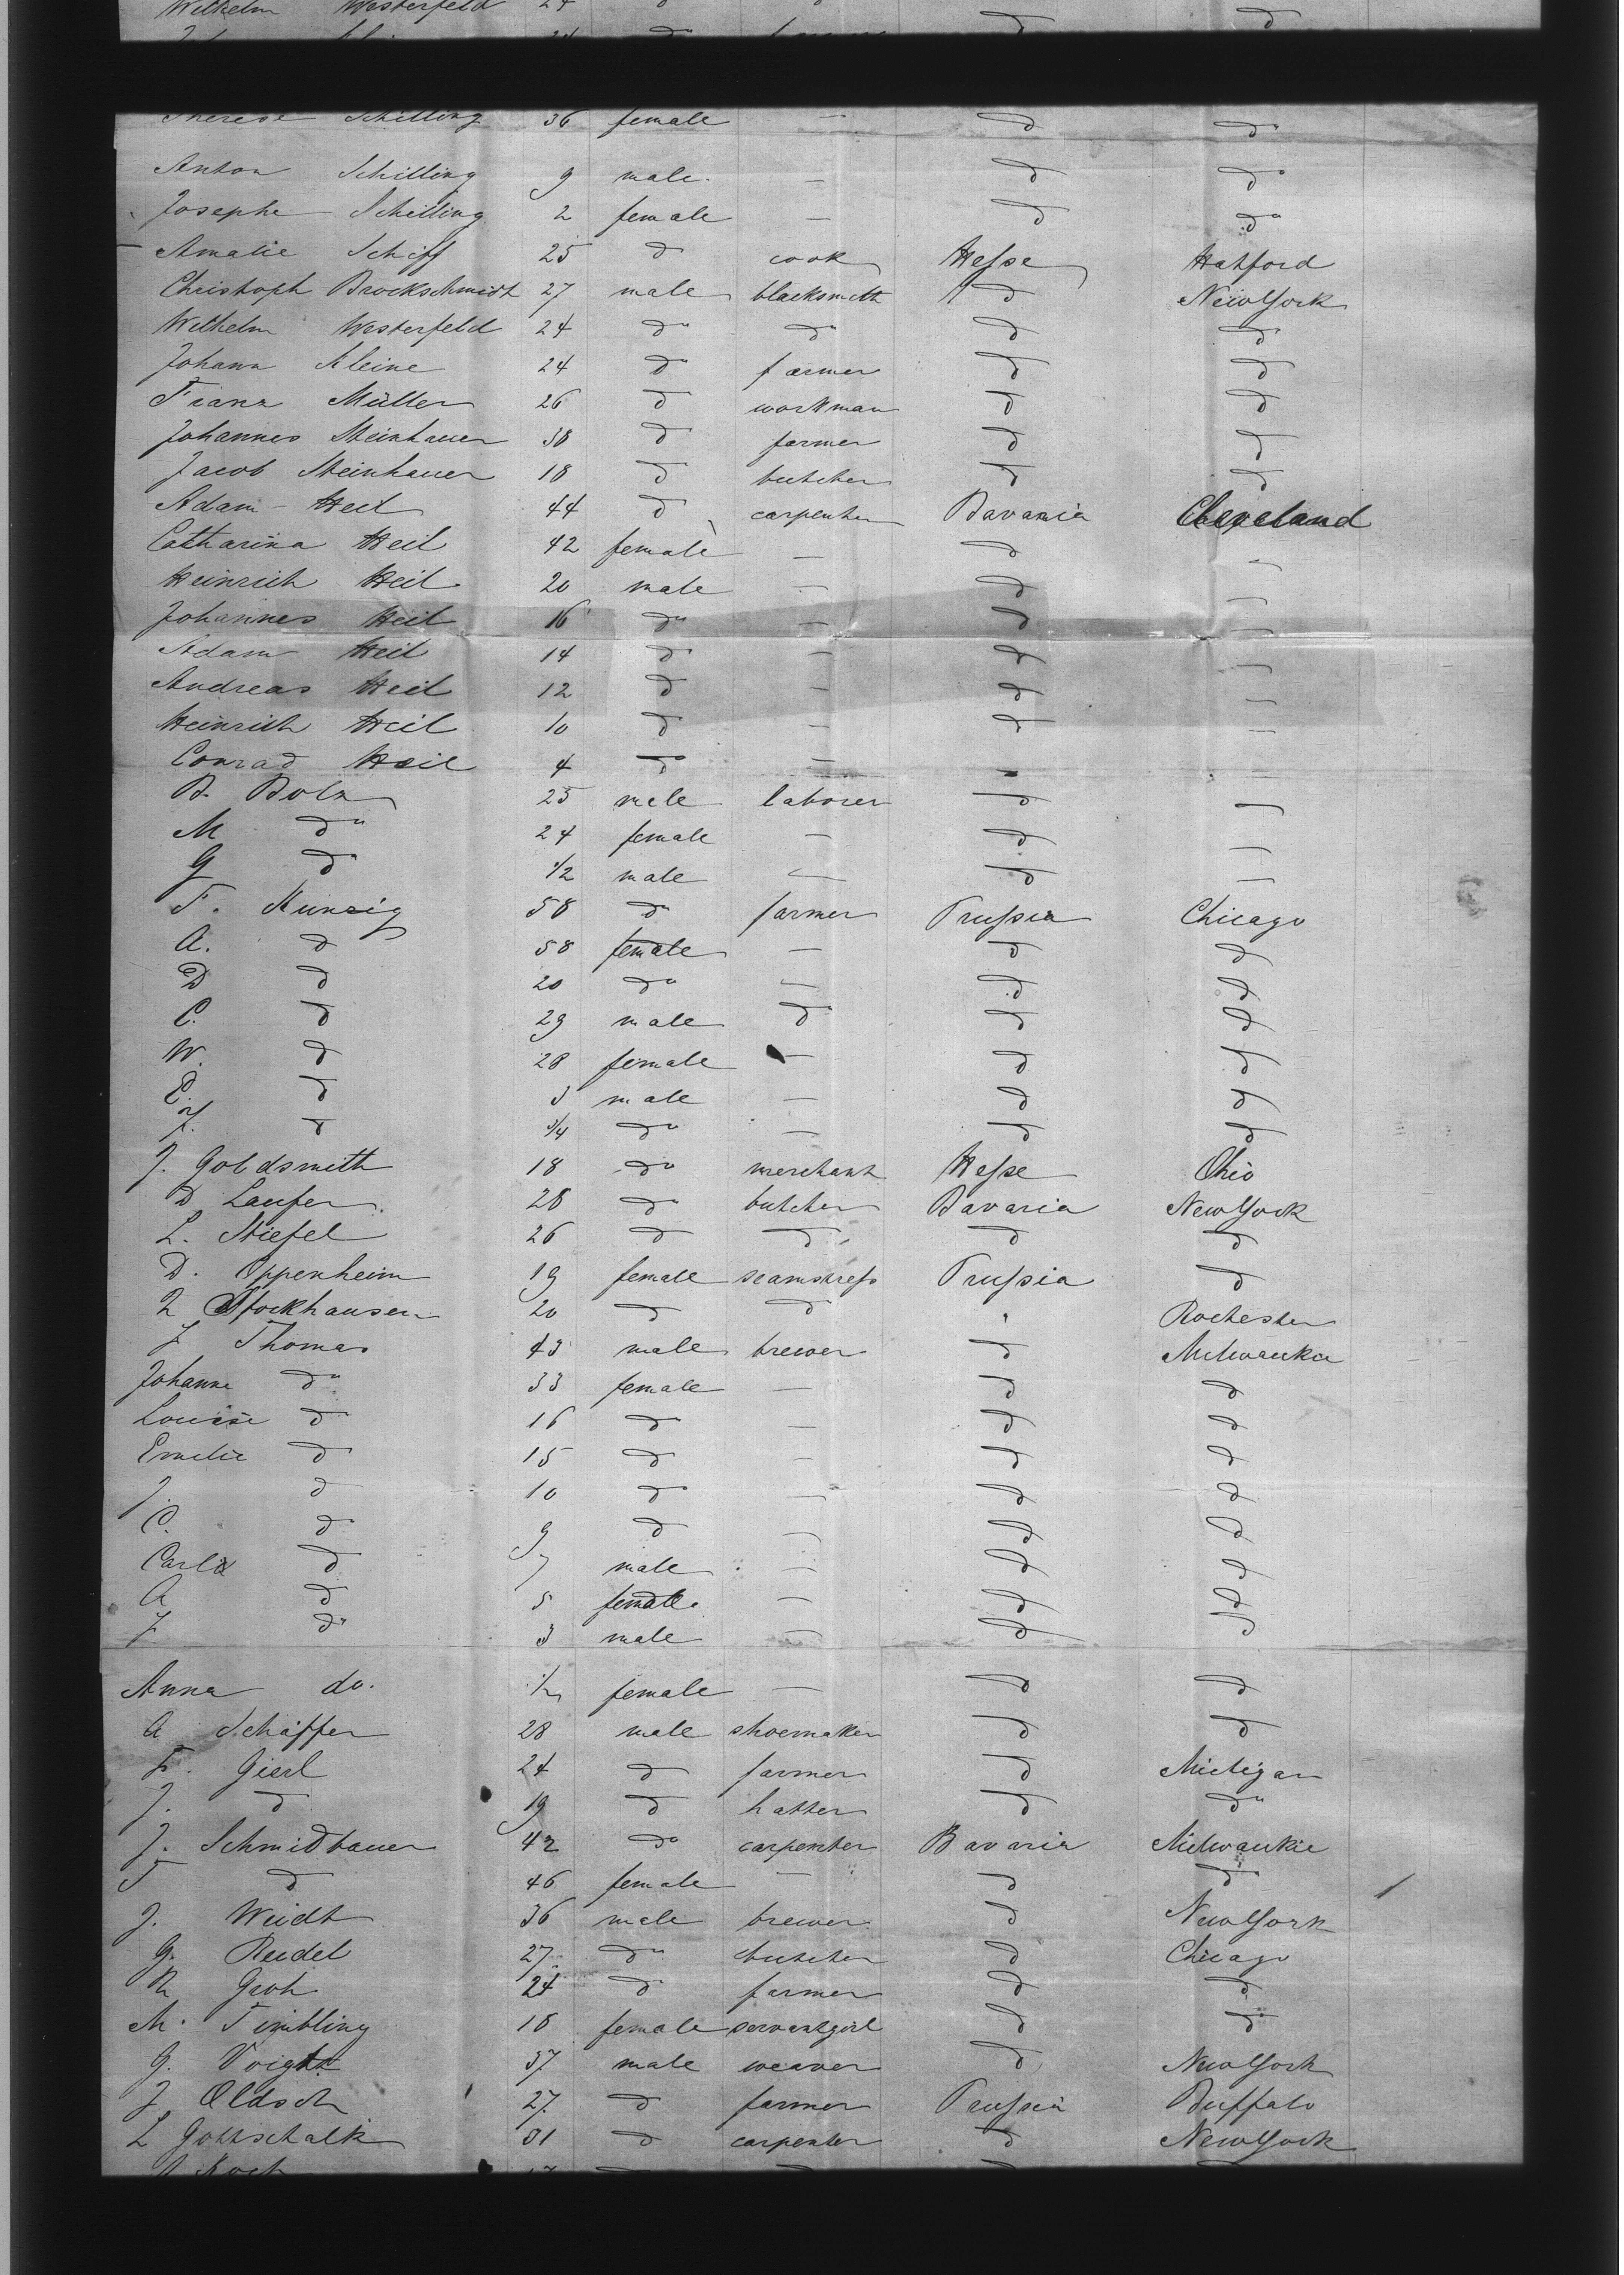 Wilhelm Westerfeld 24
Therese Schilling 36 female — d d
Anton Schilling 9 male — d d
Josephe Schilling 2 female — d d
Amalie Schiff 25 d cook Hesse Hatford
Christoph Brockschmidt 27 male blacksmith d New York
Wilhelm Westerfeld 24 d d d d
Johann Kleine 24 d farmer d d
Franz Müller 26 d workman d d
Johannes Steinhauer 38 d farmer d d
Jacob Steinhauer 18 d butcher d d
Adam Heil 44 d carpenter Bavaria Cleveland
Catharina Heil 42 female — d —
Heinrich Heil 20 male — d —
Johannes Heil 16 d — d —
Adam Heil 14 d — d —
Andreas Heil 12 d — d —
Heinrich Heil 10 d — d —
Conrad Heil 4 d — " —
B. Bolz 25 male laborer d —
M d 24 female — d —
G d 1/2 male — d —
F. Kunzig 58 d farmer Prussia Chicago
A. d 58 female — d d
D d 20 d — d d
C. d 29 male d d d
W. d 28 female — d d
E. d 3 male — d d
J. d 3/4 d — d d
J. Goldsmith 18 d merchant Hesse Ohio
D Laufer 28 d butcher Bavaria New York
L. Stiefel 26 d d d d
D. Oppenheim 19 female seamstress Prussia d
L Stockhausen 20 d d " Rochester
J Thomas 43 male brewer d Milwaukee
Johanne d 33 female — d d
Louise d 16 d — d d
Emelie d 15 d — d d
J. d 10 d — d d
C. d 9 d — d d
Carl d 7 male — d d
A d 5 female — d d
J d 3 male — d d
Anna do. 1/2 female — d d
A Schäffer 28 male shoemaker d d
F. Gierl 24 d farmer d Michigan
J. d 19 d hatter d d
J. Schmidbauer 42 d carpenter Bavaria Milwaukie
F d 46 female — d d
J. Weidt 36 male brewer d New York
G. Reidel 27 d butcher d Chicago
R Groh 24 d farmer d d
M. Timbling 18 female servantgirl d d
G. Voigt 37 male weaver d New York
J Oldsch 27 d farmer Prussia Buffalo
L Gottschalk 31 d carpenter d New York
Koch